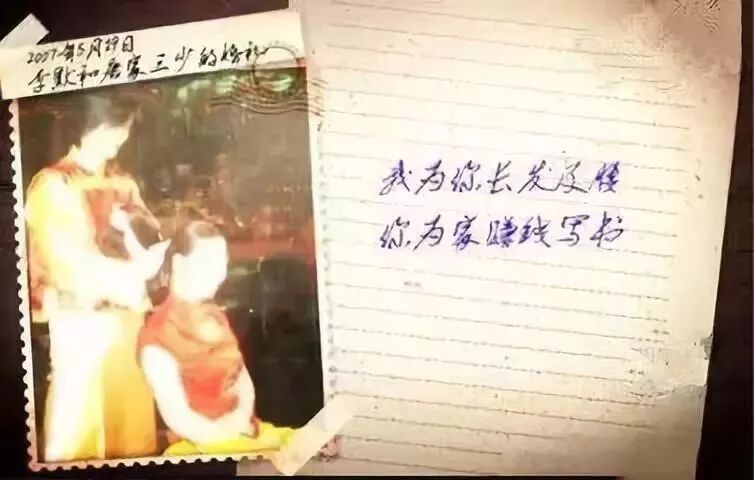 2007年5月29日
李默和唐家三少的婚礼
我为你长发及腰
你为家赚钱写书